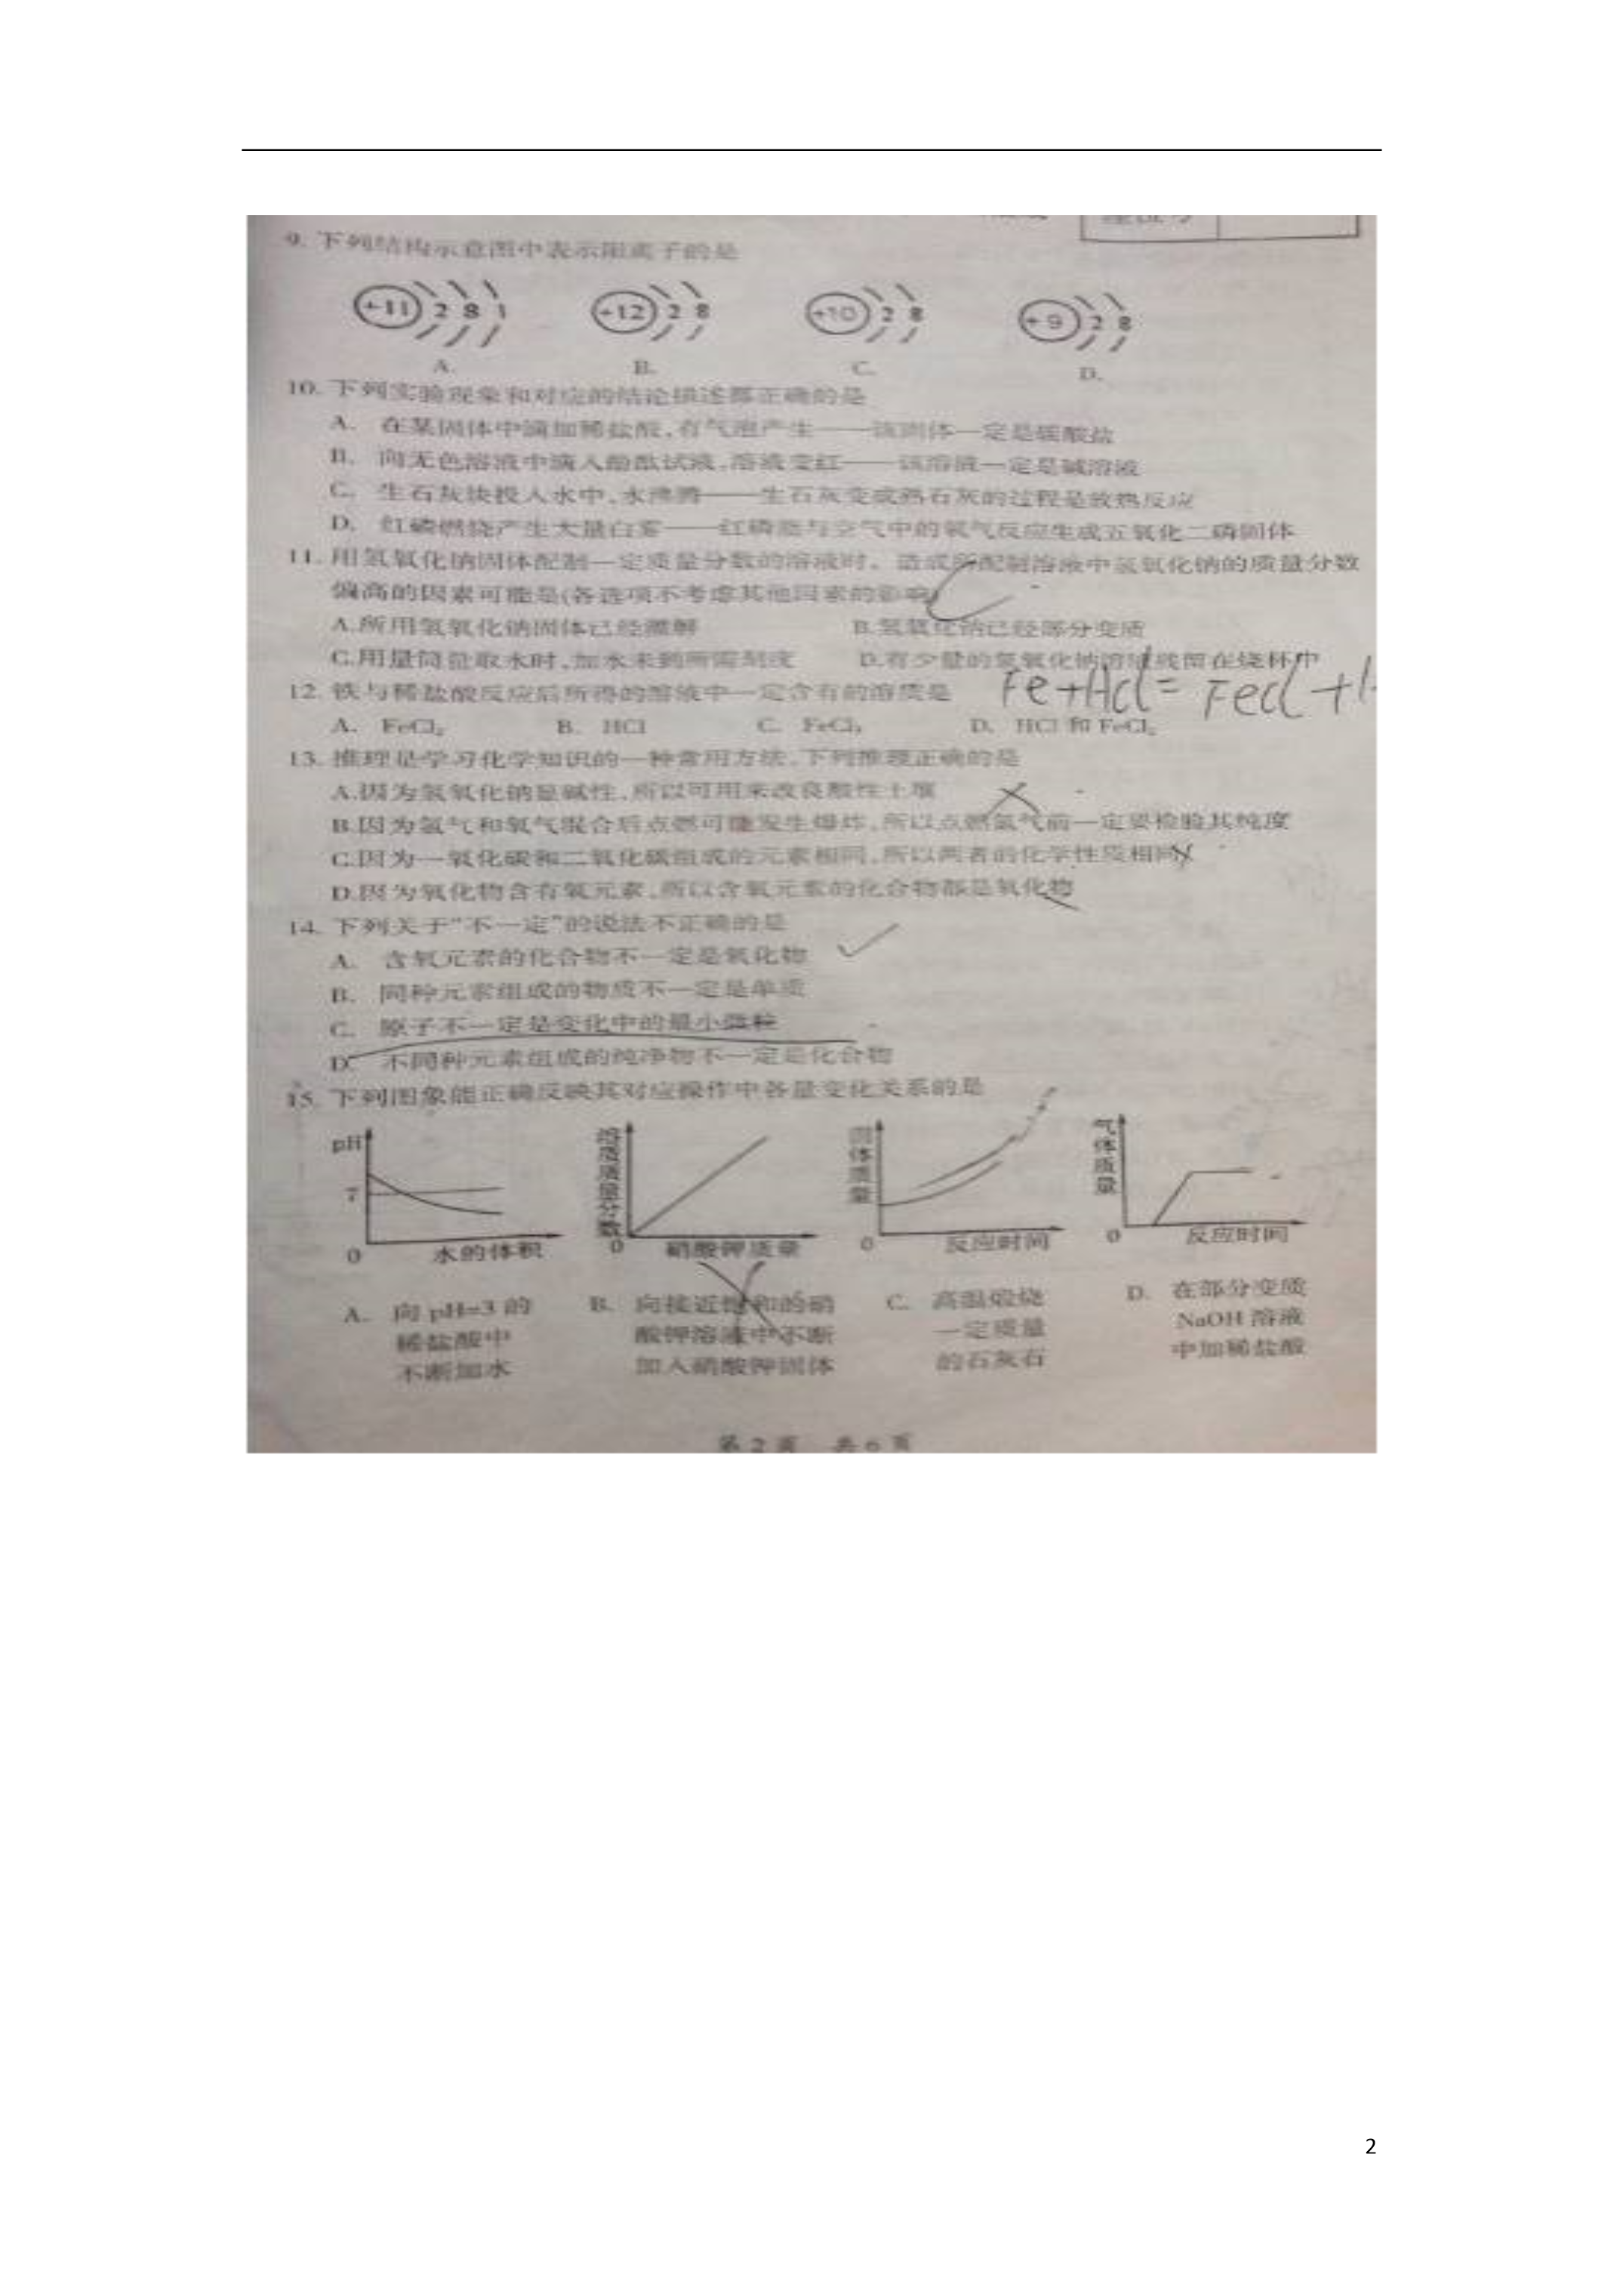 9. 下列结构示意图中表示阳离子的是
+11 2 8 1 +12 2 8 +10 2 8 +9 2 8
A. B. C. D.
10. 下列实验现象和对应的结论描述都正确的是
A. 在某固体中滴加稀盐酸,有气泡产生——该固体一定是碳酸盐
B. 向无色溶液中滴入酚酞试液,溶液变红——该溶液一定是碱溶液
C. 生石灰块投入水中,水沸腾——生石灰变成熟石灰的过程是放热反应
D. 红磷燃烧产生大量白雾——红磷能与空气中的氧气反应生成五氧化二磷固体
11. 用氢氧化钠固体配制一定质量分数的溶液时。造成所配制溶液中氢氧化钠的质量分数
偏高的因素可能是(各选项不考虑其他因素的影响)
A.所用氢氧化钠固体已经潮解 B.氢氧化钠已经部分变质
C.用量筒量取水时,加水未到所需刻度 D.有少量的氢氧化钠溶液残留在烧杯中
12. 铁与稀盐酸反应后所得的溶液中一定含有的溶质是 Fe+HCl= FeCl +H
A. FeCl₂ B. HCl C. FeCl₃ D. HCl 和 FeCl₂
13. 推理是学习化学知识的一种常用方法,下列推理正确的是
A.因为氢氧化钠显碱性,所以可用来改良酸性土壤
B.因为氢气和氧气混合后点燃可能发生爆炸,所以点燃氢气前一定要检验其纯度
C.因为一氧化碳和二氧化碳组成的元素相同,所以两者的化学性质相同
D.因为氧化物含有氧元素,所以含氧元素的化合物都是氧化物
14. 下列关于“不一定”的说法不正确的是
A. 含氧元素的化合物不一定是氧化物
B. 同种元素组成的物质不一定是单质
C. 原子不一定是变化中的最小微粒
D. 不同种元素组成的纯净物不一定是化合物
15. 下列图象能正确反映其对应操作中各量变化关系的是
pH 7 0 水的体积
溶质质量分数 0 硝酸钾质量
固体质量 0 反应时间
气体质量 0 反应时间
A. 向 pH=3 的
稀盐酸中
不断加水
B. 向接近饱和的硝
酸钾溶液中不断
加入硝酸钾固体
C. 高温煅烧
一定质量
的石灰石
D. 在部分变质
NaOH 溶液
中加稀盐酸
第 2 页 共 6 页
2